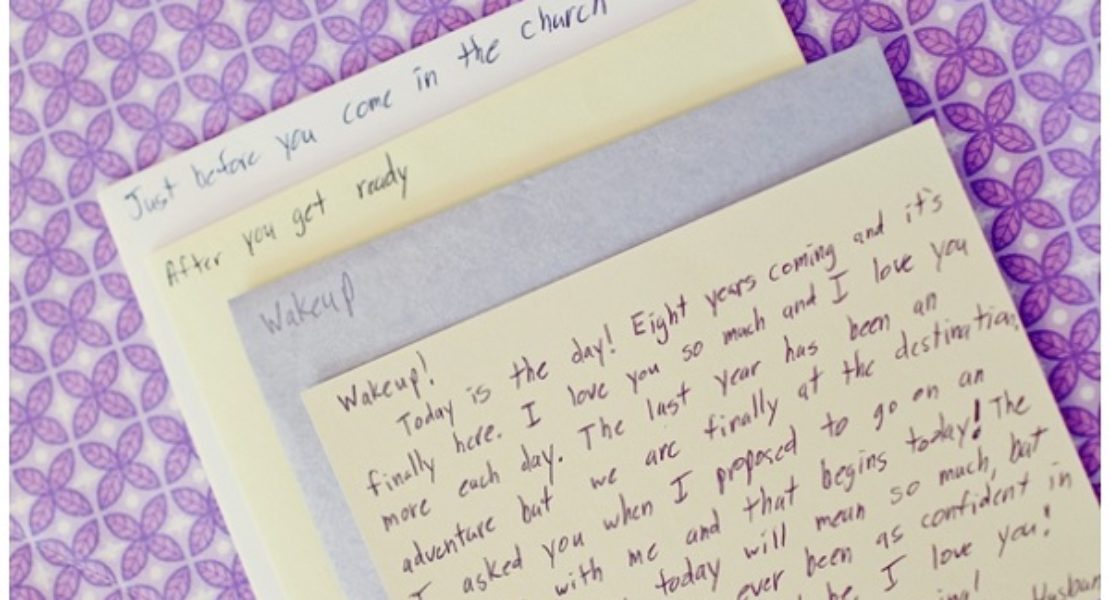 Just before you come in the church
After you get ready
Wakeup
Wakeup!
Today is the day! Eight years coming and it's
finally here. I love you so much and I love you
more each day. The last year has been an
adventure but we are finally at the destination.
I asked you when I proposed to go on an
with me and that begins today! The
today will mean so much, but
ever been as confident in
be. I love you!